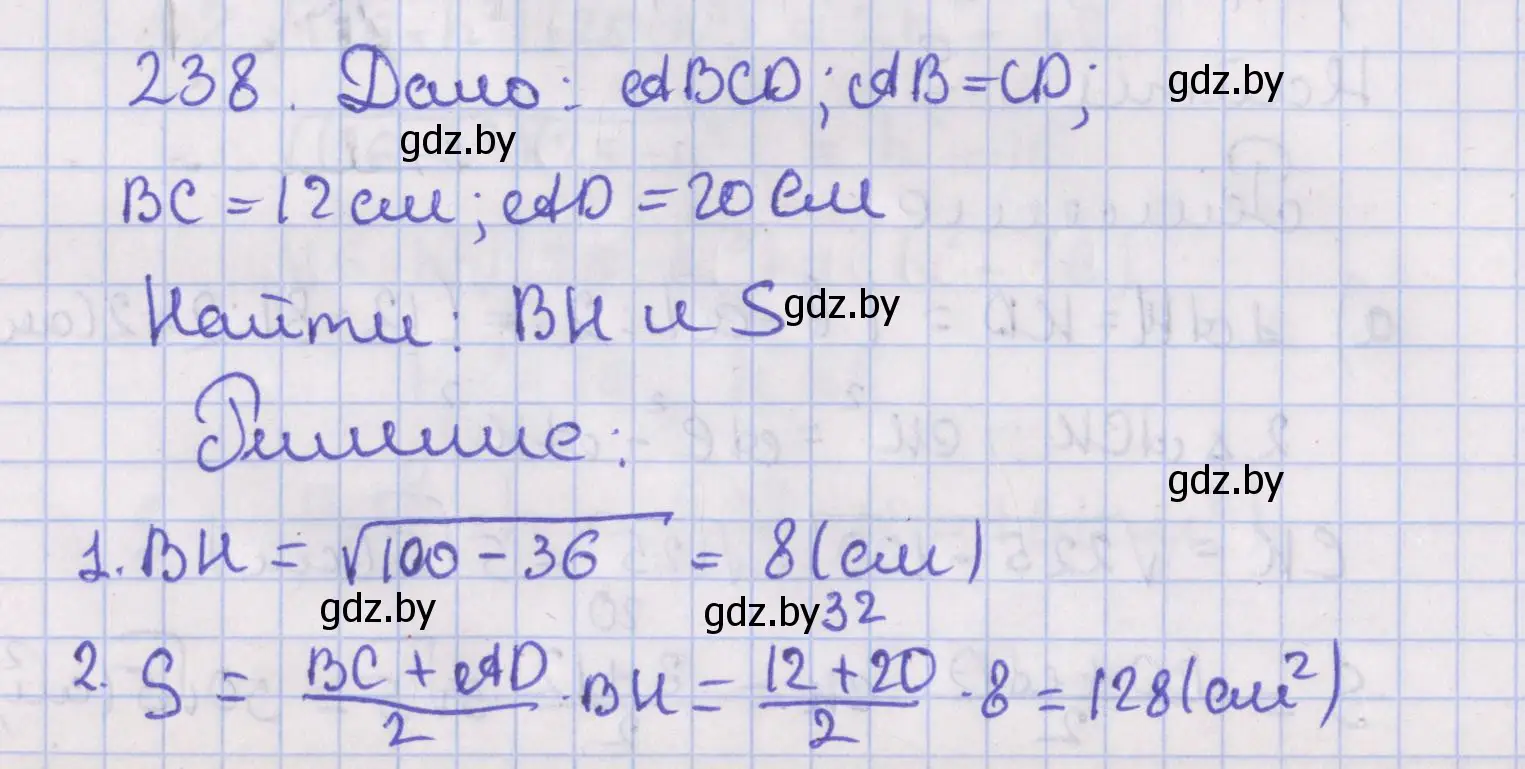 238. Дано: ABCD; AB=CD; gdz.by
gdz.by
BC = 12 см; AD = 20 см
Найти: BH и S gdz.by
Решение:
gdz.by
1. BH = √100 - 36 = 8 (см)
gdz.by gdz.by 32
2. S = BC + AD / 2 · BH = 12 + 20 / 2 · 8 = 128 (см²)